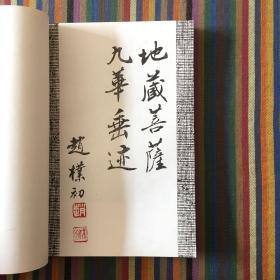 地藏菩薩
九華垂迹
趙樸初